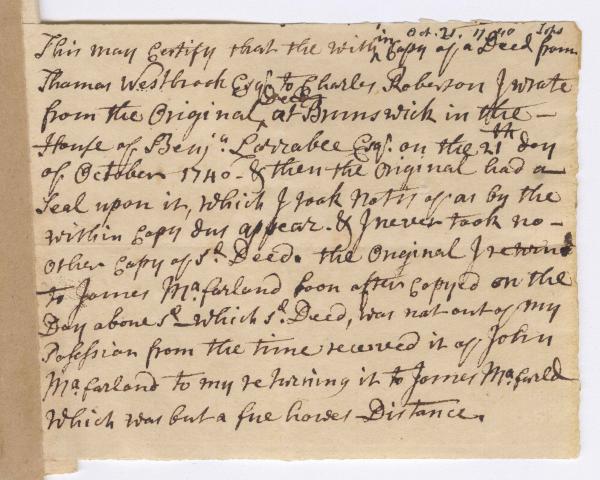 Oct. 21. 1740
This may Certify that the with in Copy of a Deed from
Thomas Westbrook Esqr. to Charles Roberson I wrote
from the Original Deed, at Brunswick in the -
House of Benja. Larrabee Esqr. on the 21th day
of October 1740 - & then the Original had a
Seal upon it, which I took Notis of as by the
within Copy dus appear. & I never took no -
Other Copy of sd. Deed. the Original I returnd
to James Macfarland soon after Copyed on the
Day above sd - which sd. Deed, was not out of my
Posession from the time received it of John
Macfarland to my returning it to James Macfarld
Which was but a fue howrs Distance.